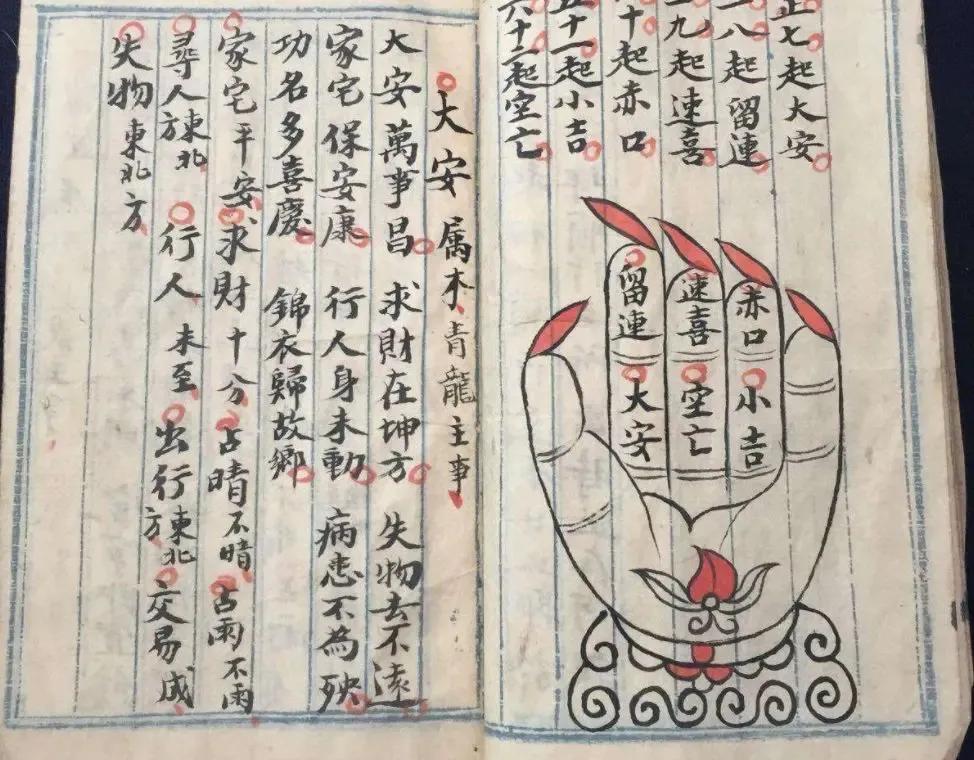 正七起大安
八起留連
九起速喜
十起赤口
五十一起小吉
六十二起空亡
赤口
小吉
速喜
空亡
留連
大安
大安 属木 青龍主事
大安萬事昌 求財在坤方 失物去不遠
家宅保安康 行人身未動 病患不為殃
功名多喜慶 錦衣歸故鄉
家宅平安 求財十分 占晴不暗 占雨不雨
尋人東北方 行人未至 出行東北方 交易成
失物東北方